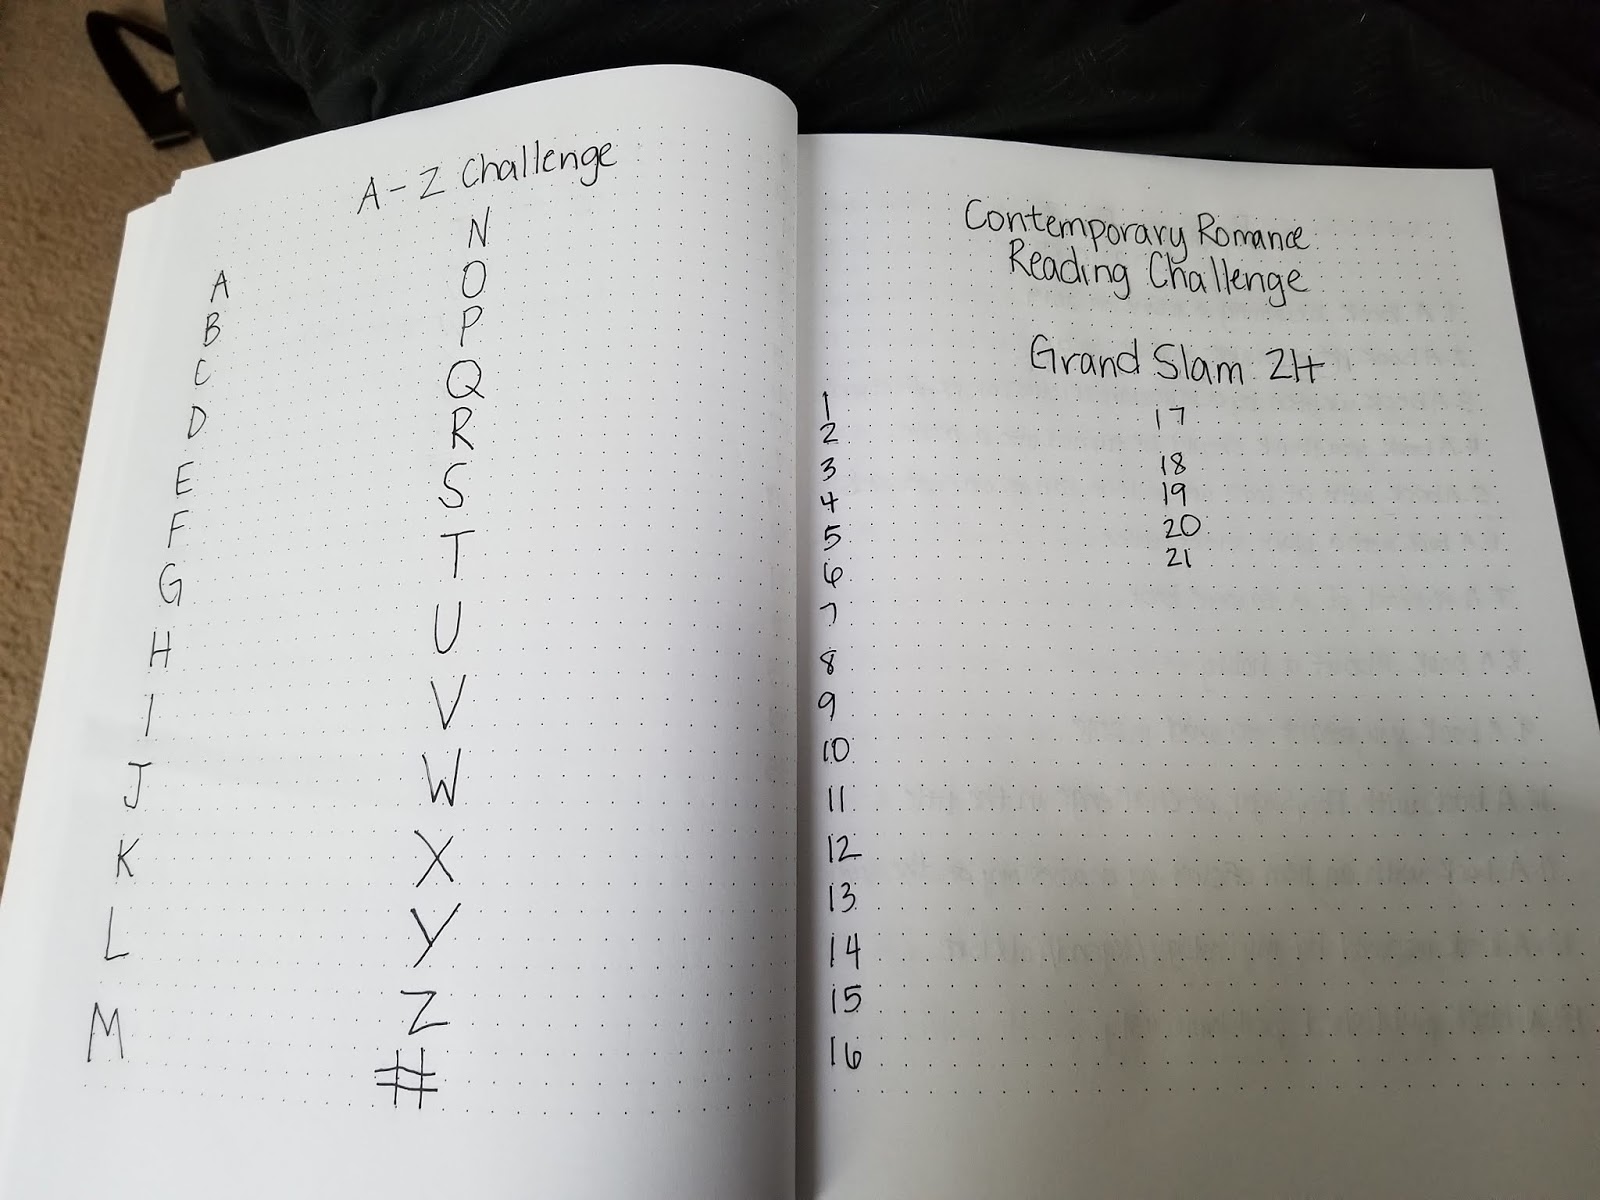 A-Z Challenge
A
B
C
D
E
F
G
H
I
J
K
L
M
N
O
P
Q
R
S
T
U
V
W
X
Y
Z
#
Contemporary Romance
Reading Challenge
Grand Slam 21+
1
2
3
4
5
6
7
8
9
10
11
12
13
14
15
16
17
18
19
20
21